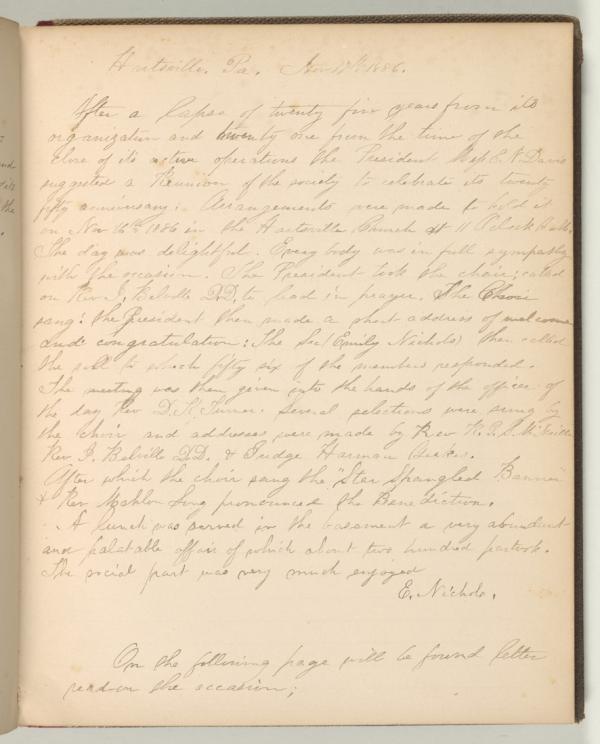 Hartsville. Pa. Nov 17th 1886.
After a lapse of twenty five years from its
organization and twenty one from the time of the
close of its active operations the President Miss E. N. Davis
suggested a Reunion of the society to celebrate its twenty
fifty anniversary: Arrangements were made to hold it
on Nov 16th 1886 in the Hartsville Church at 11 Oclock
The day was delightful. Every body was in full sympathy
with the occasion. The President took the chair; called
on Rev J. Belville D.D. to lead in prayer. The Choir
sang: the President then made a short address of welcome
and congratulation: The Sec (Emily Nichols) then called
the roll to which fifty six of the members responded.
The meeting was then given into the hands of the officer of
the day Rev D. K. Turner. Several selections were sung by
the choir and addresses were made by Rev
Rev J. Belville D.D. & Judge Harman
After which the choir sang the "Star Spangled Banner"
& Rev Mahlon Long pronounced the Benediction.
A lunch was served in the basement a very abundant
and palatable affair of which about two hundred partook.
The social part was very much enjoyed
E. Nichols.
On the following page will be found letter
read on the occasion;